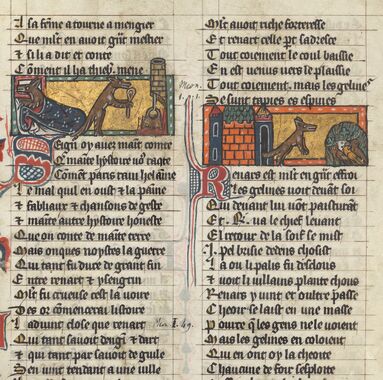 A sa feme a tourne a mengier
Que mlt en auoit gnt mestier
Et si li a dit et conte
Coment il ha thieb. mene
oy auez maint conte
maite hystoire
Coment paris raui helaine
Le mal quil en oust et la paine
Et fabliaux et chansons de geste
Et maite autre hystoire honeste
Que on conte de maite terre
Mais onques noystes la guerre
Qui tant fu dure de grant fin
Entre renart et ysengrin
Mlt fu crueuse cest la uoire
Des or comencerai listoire
aduint close que renart
Qui tant sauoit dengin et dart
Et qui tant par sauoit de guile
Sen uint tendant a une uile
Mlt auoit riche forteresse
Et renart celle part sadresce
Tout coiement le coul baissie
En est uenus uers le plaissie
Tout coiement. mais les gelines
Se sunt tapies es espines
Renars est mlt en gnt effroi
Les gelines uoit deuant soi
Qui deuant lui uont pasturant
Et. R. ua le chief leuant
El retor de la soif se mist
pel brisie dedens choisist
La ou li palis fu desclous
Et uoit li uillains plante chous
Renars y uint et outre passe
Cheoir se laist en une masse
Pource que les gens ne le uoient
Mais les gelines en coloient
Qui en ont oy la cheoite
Chaucune de foir sesploite